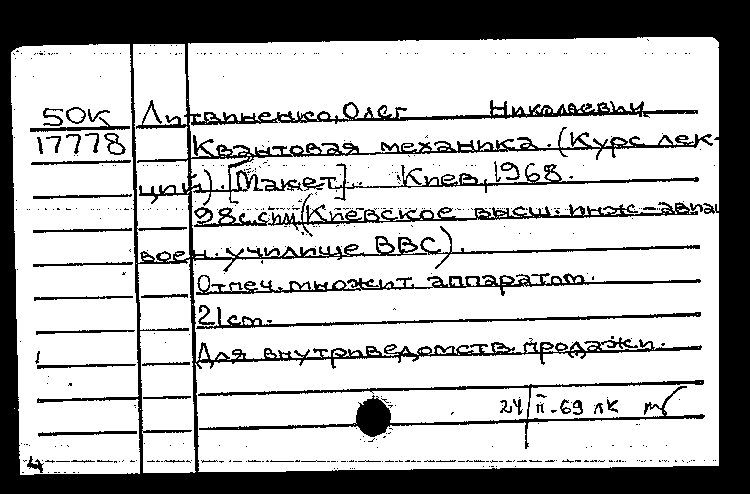 50К Литвиненко, Олег Николаевич
17778 Квантовая механика. (Курс лек-
ций). [Макет]. Киев, 1968.
98 с. (Киевское высш. инж-авиа
воен. училище ВВС).
Отпеч. множит. аппаратом.
21 cm.
Для внутриведомств. продажи.
24/II-69 лк
4